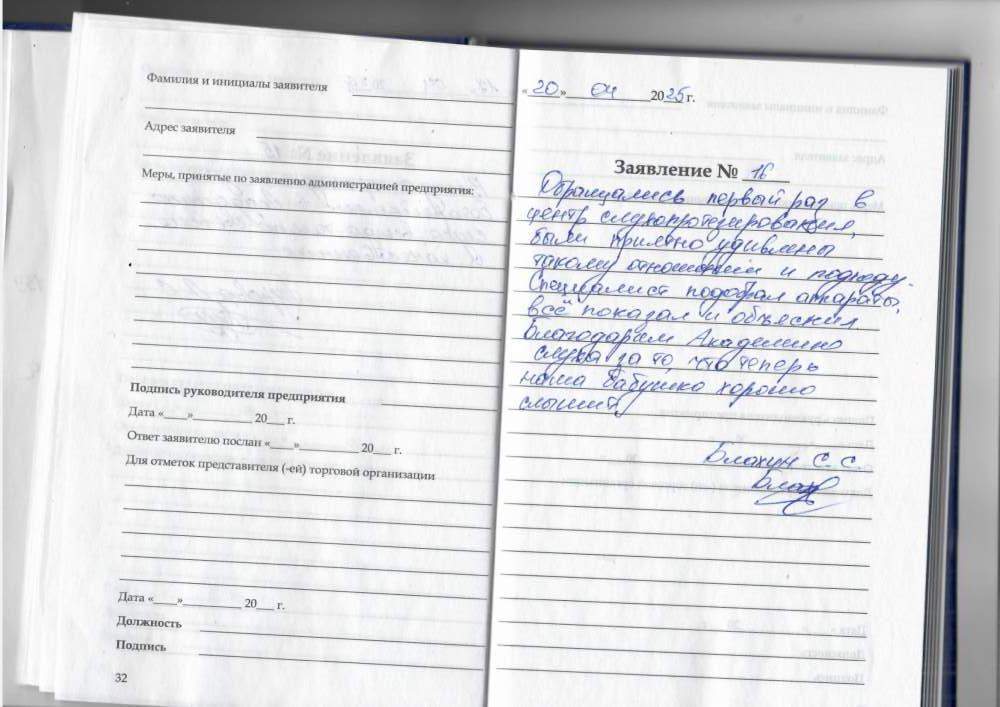 Фамилия и инициалы заявителя
Адрес заявителя
Меры, принятые по заявлению администрацией предприятия:
Подпись руководителя предприятия
Дата «___»_________ 20___ г.
Ответ заявителю послан «___»_________ 20___ г.
Для отметок представителя (-ей) торговой организации
Дата «___»_________ 20___ г.
Должность
Подпись
32
«20» 04 2025 г.
Заявление № 16
Обращались первый раз в
центр слухопротезирования,
были приятно удивлены
такому отношению и подходу.
Специалист подобрал аппараты,
всё показал и объяснил.
Благодарим Академию
слуха за то, что теперь
наша бабушка хорошо
слышит
Блахун С. С.